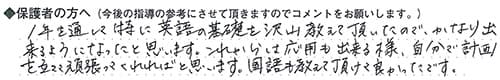 ◆保護者の方へ（今後の指導の参考にさせて頂きますのでコメントをお願いします。）
1年を通して特に英語の基礎を沢山教えて頂いたので、かなり出
来るようになったと思います。これからは応用も出来る様、自分で計画
を立てて頑張ってくれればと思います。国語も教えて頂けて良かったです。